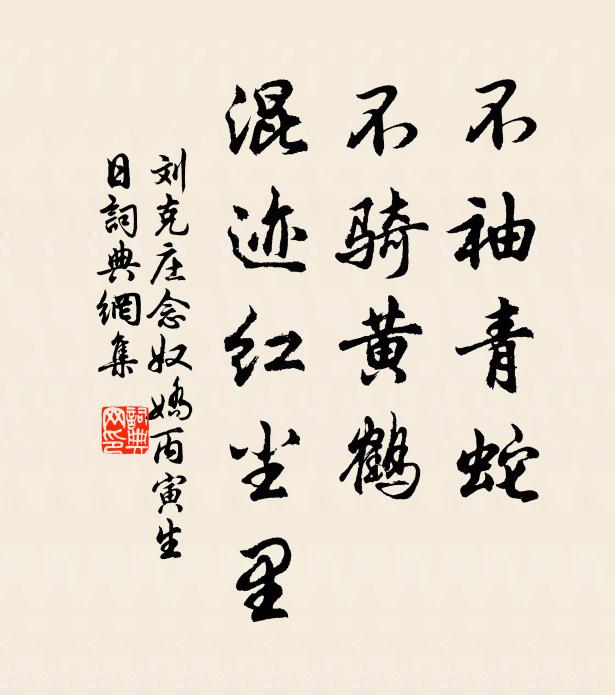 不袖青蛇
不骑黄鹤
混迹红尘里
刘克庄念奴娇丙寅生
日詞典網集
詞典網印